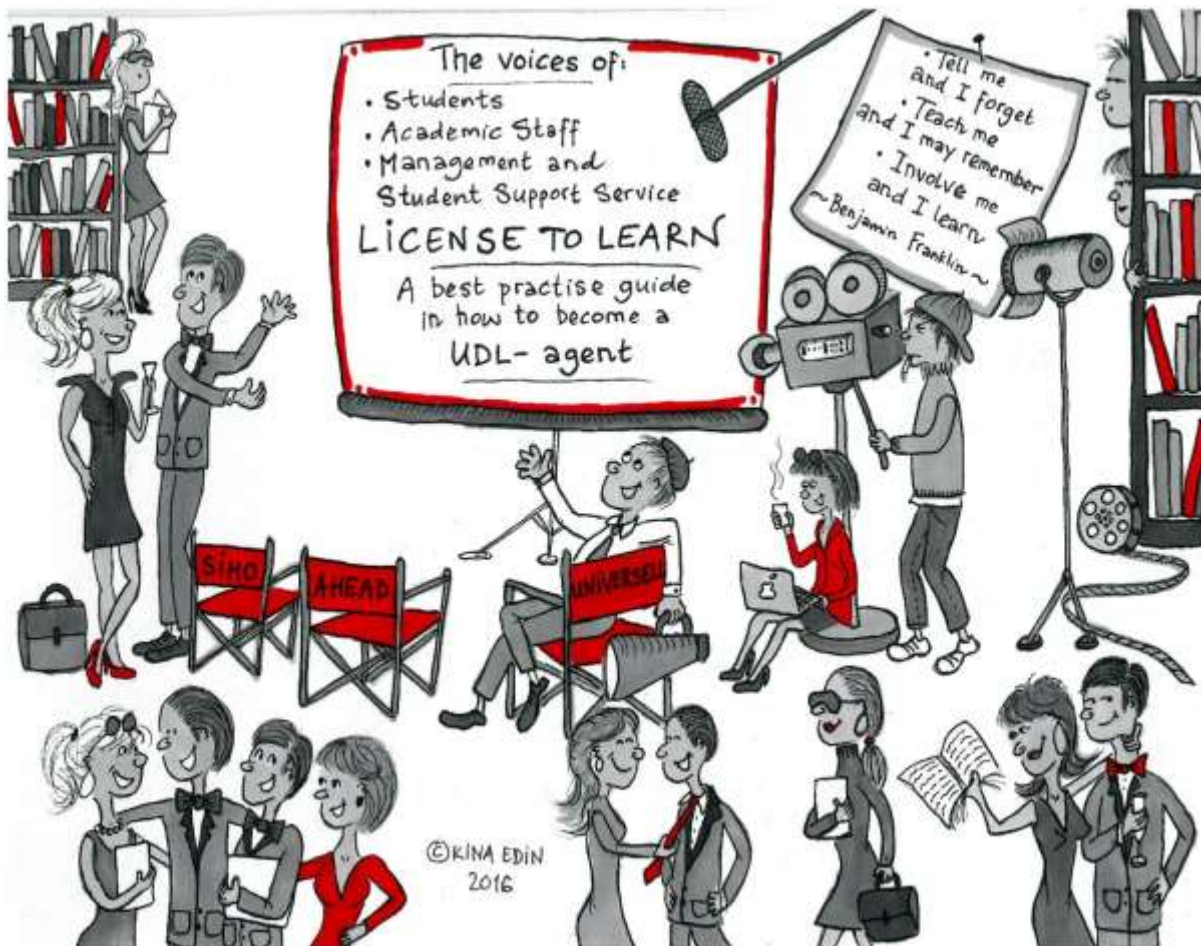 The voices of:
• Students
• Academic Staff
• Management and
Student Support Service
LiCENSE TO LEARN
A best practise guide
in how to become a
UDL- agent
• Tell me
and I forget
• Teach me
and I may remember
• Involve me
and I learn
~ Benjamin Franklin ~
SiHO
AHEAD
UNIVERSELL
©KINA EDiN
2016